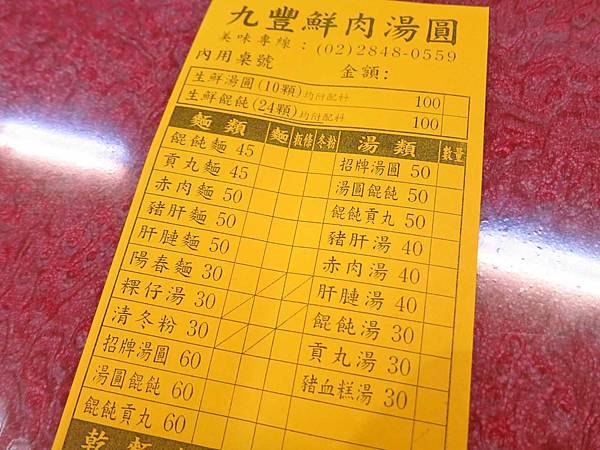 九豐鮮肉湯圓
美味專線：(02)2848-0559
內用桌號 金額：
生鮮湯圓(10顆)均附配料 100
生鮮餛飩(24顆)均附配料 100
麵類 麵 粄條 冬粉 湯類 數量
餛飩麵 45 招牌湯圓 50
貢丸麵 45 湯圓餛飩 50
赤肉麵 50 餛飩貢丸 50
豬肝麵 50 豬肝湯 40
肝腱麵 50 赤肉湯 40
陽春麵 30 肝腱湯 40
粿仔湯 30 餛飩湯 30
清冬粉 30 貢丸湯 30
招牌湯圓 60 豬血糕湯 30
湯圓餛飩 60
餛飩貢丸 60
乾麵